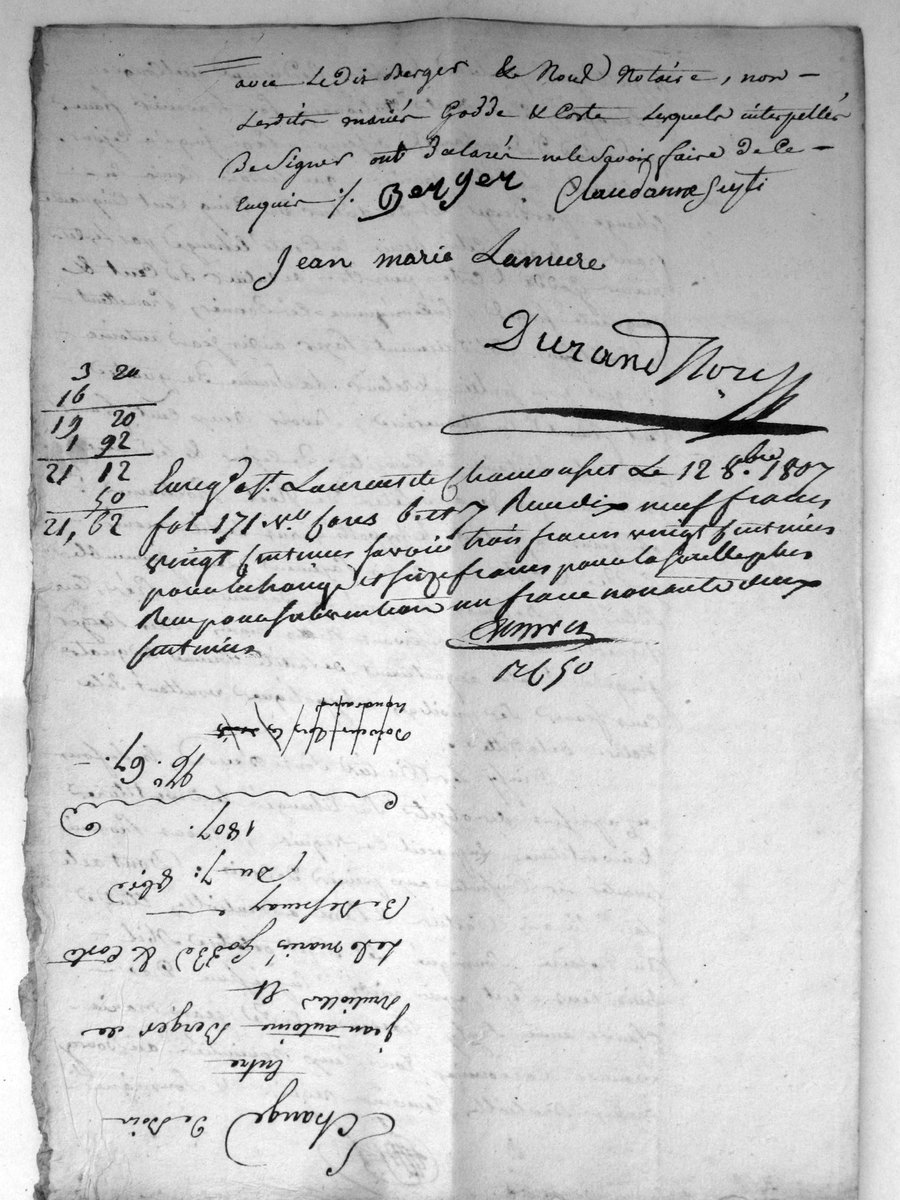 avec Ledit Berger & Nous Notaire, non -
Lesdits mariés Godde & Coste Lesquels interpellés
De Signer ont Déclarés ne le Savoir faire De Ce -
Enquis ./. Berger Claudanne Seyti
Jean marie Lamure
Durand Nore
3 20
16
19 20
1 92
21 12
50
21, 62
Enregé. à St. Laurent de Chamousset Le 12 8.bre 1807
fol 171 Vo. Cases 6. et 7 Reçu dix neuf francs
vingt Centimes Savoir trois francs vingt Centimes
pour lechange et Seize francs pour la Soulte plus
Reçu pour Subvention un franc nonante deux
Centimes
12 f 50
No. 67.
1807.
Du 7: 8bre
Les mariés Godde & Coste
jean antoine Berger de
Et
Entre
Echange De Bois